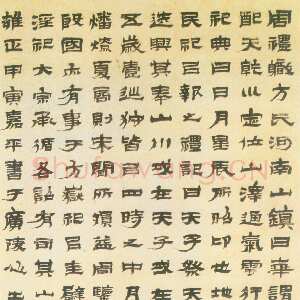 周禮職方氏河南山鎮曰華謂
配天乾坤定位山澤通氣雲行
祀典曰日月星辰所昭卬也地
民祀以報之禮記曰天子祭天
迭興其奉山川或在天子或在
五歲壹巡狩皆以四時之中
燔燎夏商則未聞所損益周鑒
殷國亦有事于方嶽祀以圭璧
淫祀大宗承循各詔有司其山
雍正甲寅嘉平書于廣陵
Shufawang.CN